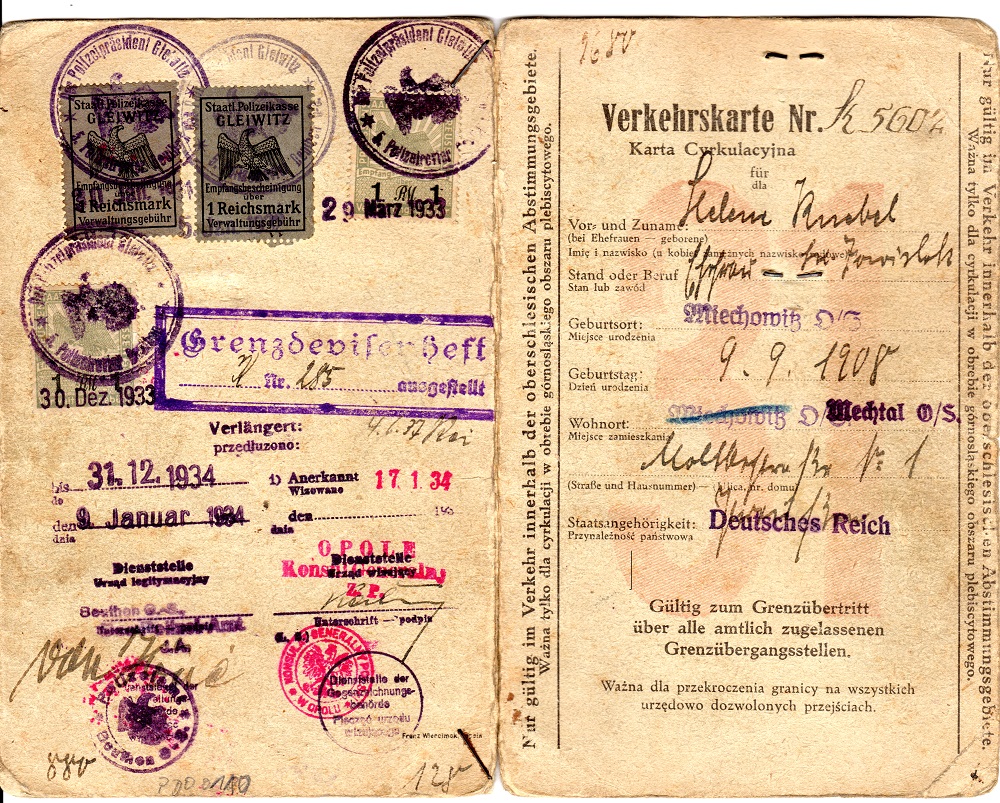 Der Polizeipräsident Gleiwitz
Polizeipräsident Gleiwitz
4. Polizeirevier
Staatl. Polizeikasse
GLEIWITZ
Empfangsbescheinigung
über
1 Reichsmark
Verwaltungsgebühr
Staatl. Polizeikasse
GLEIWITZ
Empfangsbescheinigung
über
1 Reichsmark
Verwaltungsgebühr
1 RM 1
29 März 1933
4. Polizeirevier
1 RM 1
30. Dez. 1933
Grenzdevisenheft
Nr. 285 ausgestellt
Verlängert:
przedłużono:
bis 31.12.1934
do
den 9. Januar 1934
dnia
Dienststelle
Urząd legitymacyjny
Beuthen O.-S.
Unterschrift — podpis
1) Anerkannt 17 1. 34
Wizowano
den 193
dnia
OPOLE
Dienststelle
Urząd wizujący
Unterschrift — podpis
(L. S.)
W OPOLU
Dienststelle der
Gegenzeichnungs-
behörde
Pieczęć urzędu
wizującego
880
128
Nur gültig im Verkehr innerhalb der oberschlesischen Abstimmungsgebiete.
Ważna tylko dla cyrkulacji w obrębie górnośląskiego obszaru plebiscytowego.
Verkehrskarte Nr. K 5602
Karta Cyrkulacyjna
für
dla
Helene Knebel
Vor- und Zuname:
(bei Ehefrauen — geborene)
Imię i nazwisko (u kobiet zamężnych nazwisko rodowe)
Stand oder Beruf Ehefrau
Stan lub zawód
Geburtsort: Miechowitz O/S
Miejsce urodzenia
Geburtstag: 9. 9. 1908
Dzień urodzenia
Wohnort: Miechowitz O/S Mechtal O/S.
Miejsce zamieszkania
Nr 1
(Straße und Hausnummer) — (ulica, nr. domu)
Staatsangehörigkeit: Deutsches Reich
Przynależność państwowa
Gültig zum Grenzübertritt
über alle amtlich zugelassenen
Grenzübergangsstellen.
Ważna dla przekroczenia granicy na wszystkich
urzędowo dozwolonych przejściach.
Nur gültig im Verkehr innerhalb der oberschlesischen Abstimmungsgebiete.
Ważna tylko dla cyrkulacji w obrębie górnośląskiego obszaru plebiscytowego.